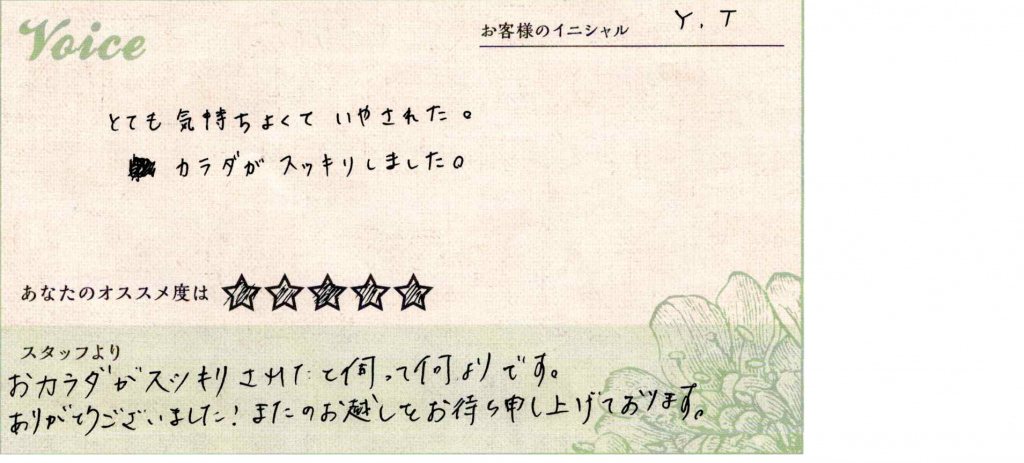 Voice
お客様のイニシャル Y.T
とても気持ちよくていやされた。
カラダがスッキリしました。
あなたのオススメ度は
スタッフより
おカラダがスッキリされたと伺って何よりです。
ありがとうございました！またのお越しをお待ち申し上げております。